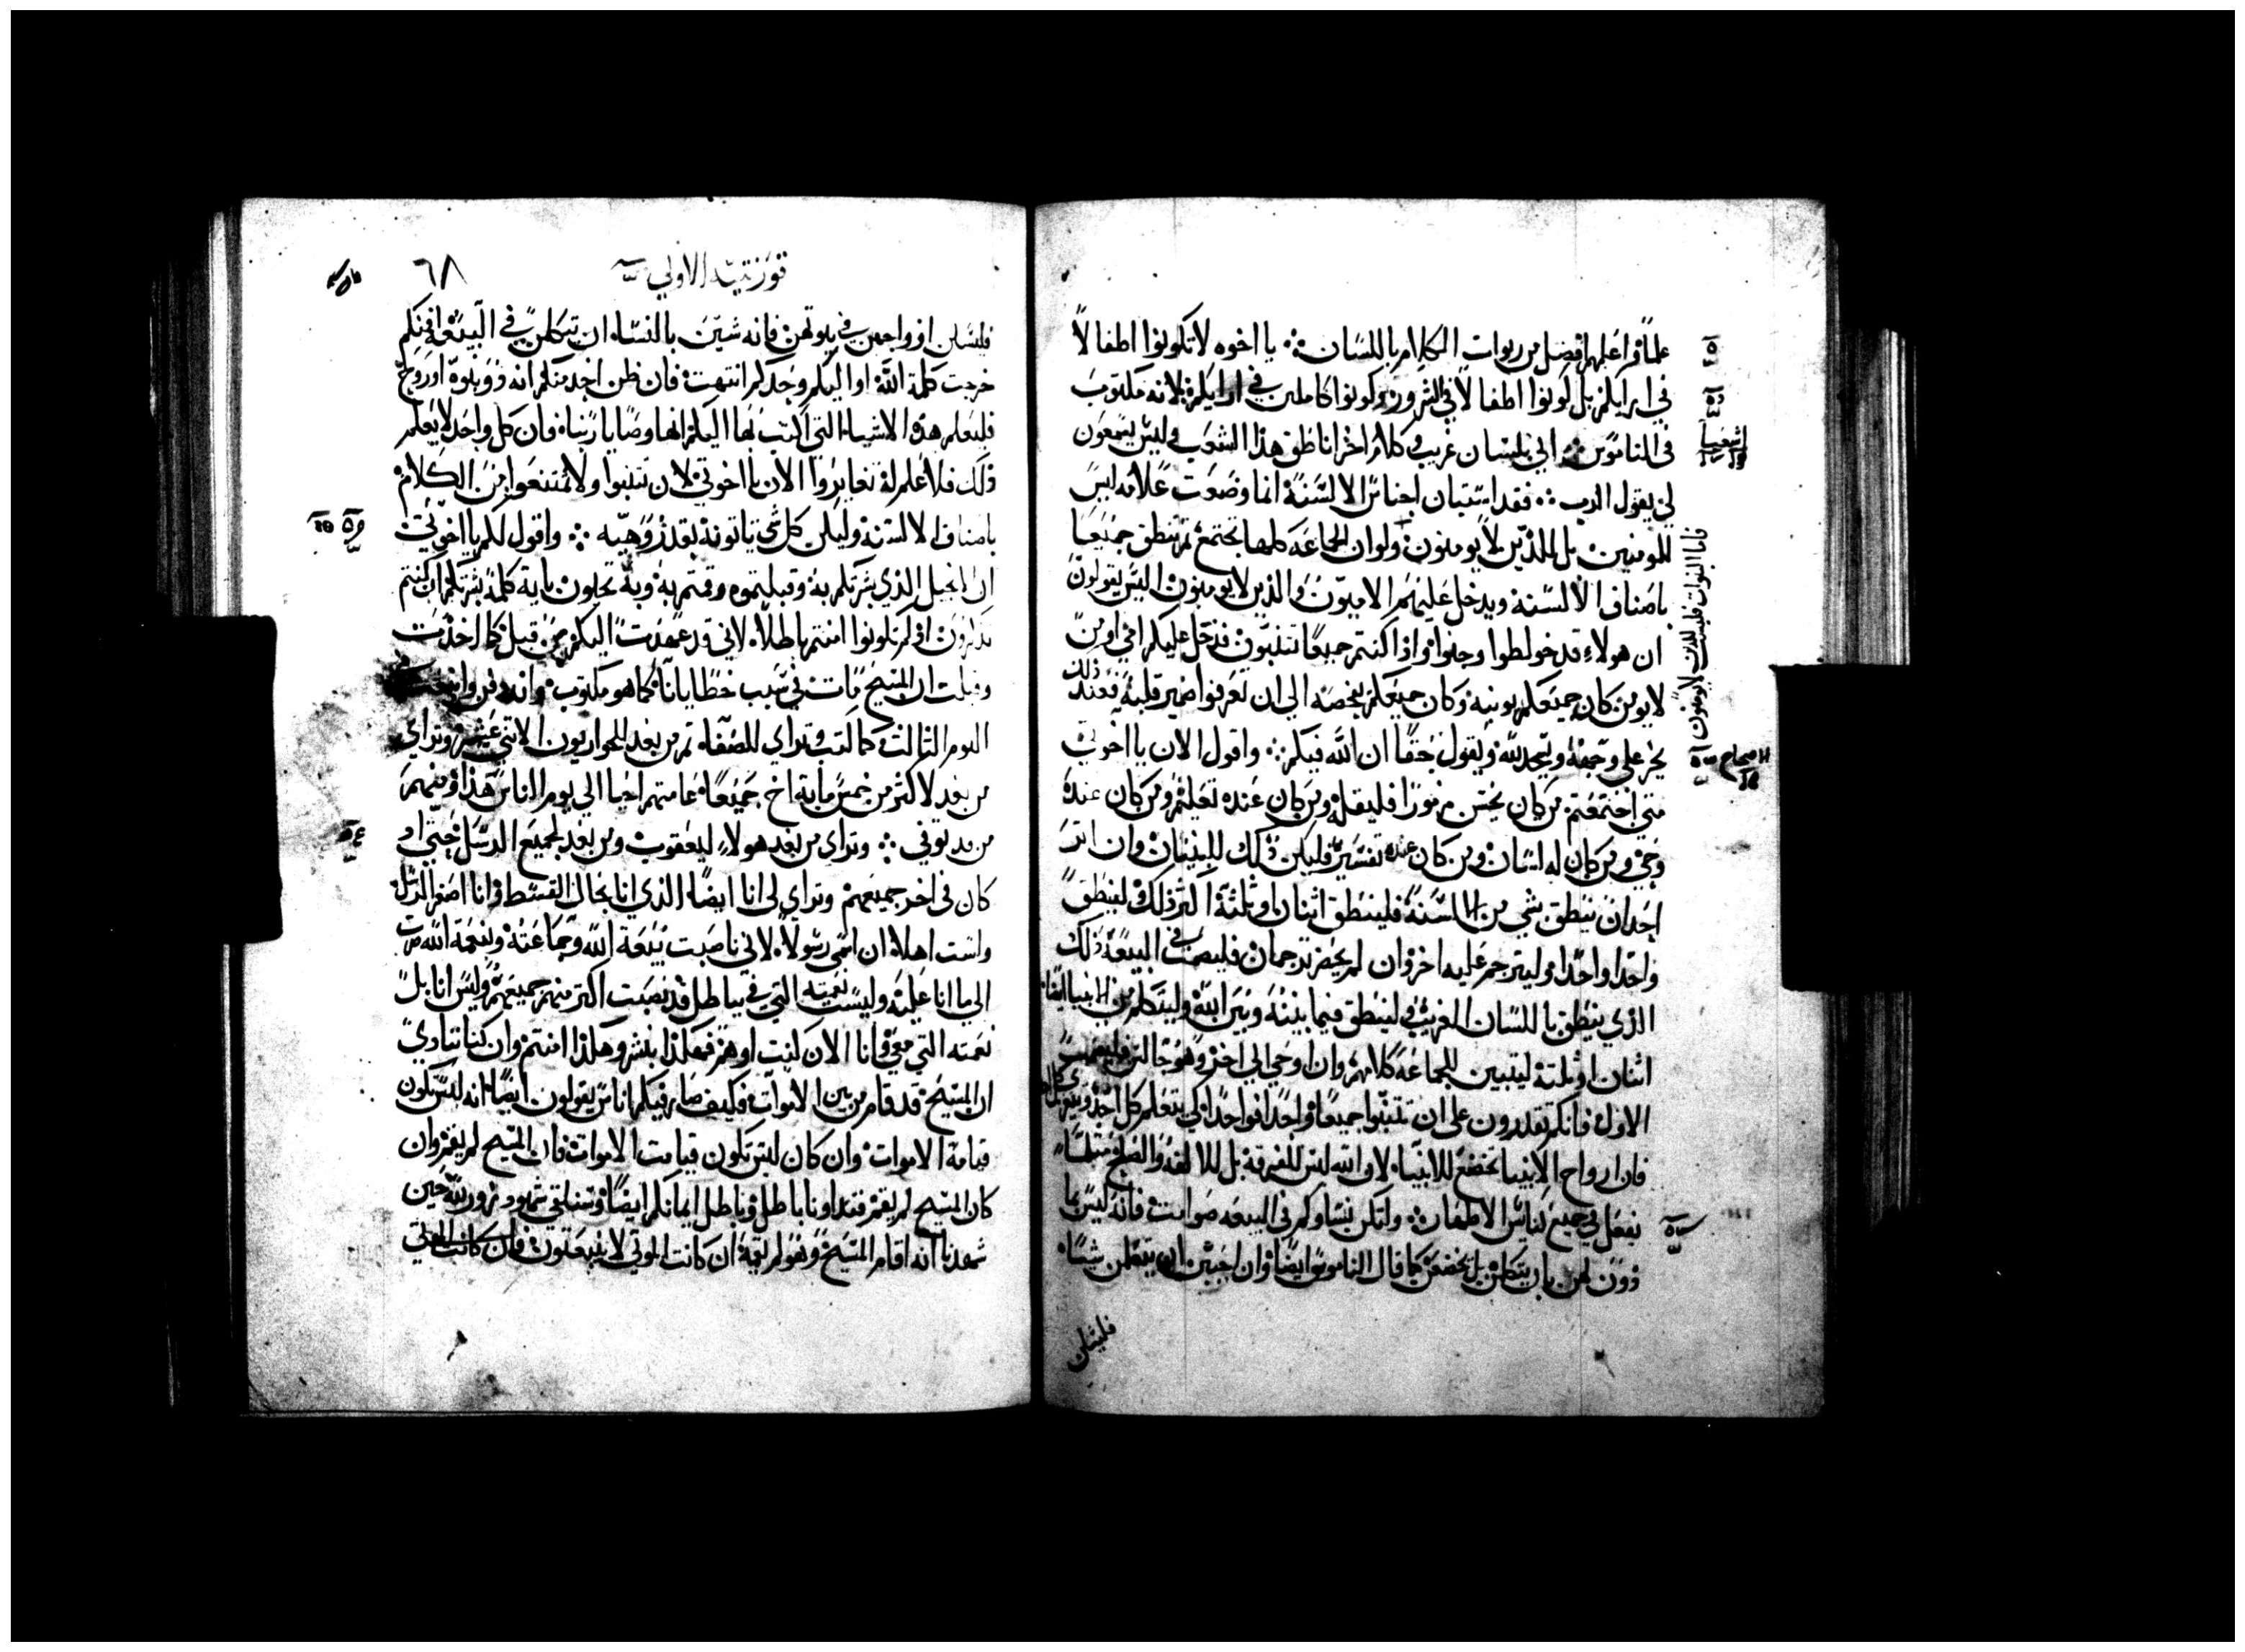 علمًا فراعلمهم افضل من ربوات الكلام باللسان ܀ يا اخوه لا تكونوا اطفالاً
في ارايكم بل كونوا اطفالاً في الشرور وكونوا كاملين في ارايكم لانه مكتوب
في الناموس اني بلسان غريب وكلام اخر اناطق هذا الشعب وليس يسمعون
لي يقول الرب ܀ فقد استبان اجناس الالسنة انما وضعت علامه ليس
للمومنين بل للذين لا يومنون ولو ان الجماعه كلها تجتمع ثم تنطق جميعا
باصناف الالسنة ويدخل عليهم الاميون والذين لا يومنون اليس يقولون
ان هولاء قد خولطوا وجنوا واذا كنتم جميعًا تتنبون فدخل عليكم امي او من
لا يومن كان جميعكم يونبه وكان جميعكم يفحصه الي ان تعرفوا ضمير قلبه فعند ذلك
يخر علي وجهه ويسجد لله ويقول حقًا ان الله فيكم ܀ واقول الان يا اخوتي
متي اجتمعتم من كان يحسن مزمورًا فليقله ومن كان عنده تعليم ومن كان عنده
وحي ومن كان له لسان ومن كان عنده تفسير فليكن ذلك للبنيان وان اثر
احد ان ينطق بشي من الالسنة فلينطق اثنان او ثلثة اكثر ذلك ولينطق
واحدا واحدا وليترجم عليه اخر وان لم يحضر ترجمان فليصمت في البيعة ذلك
الذي ينطق باللسان الغريب ولينطق فيما بينه وبين الله وليتكلم من الانبيا ايضا
اثنان او ثلثة ليتبين للجماعة كلامهم وان اوحي الي اخر وهو جالس فليصمت
الاول فانكم تقدرون علي ان تتنبوا جميعًا واحدًا فواحدًا كي يتعلم كل احد
فان ارواح الانبيا تخضع للانبيا لان الله ليس للفرقة بل للالفة والصلح مثلما
نفعل في جميع كنايس الاطهار ܀ ولتكن نساوكم في البيعه صوامت فانه ليس ما
ذون لهن بان يتكلمن بل يخضعن كما قال الناموس ايضًا وان احببن ان يتعلمن شيئًا
فليسلن
فاما النبوات فليست للذين لا يومنون
اشعيا
الاصحاح
قورنتيه الاولي
٦٨
فليسلن ازواجهن في بيوتهن فانه شين بالنساء ان يتكلمن في البيعة افمنكم
خرجت كلمة الله او اليكم وحدكم انتهت فان ظن احد منكم انه ذو نبوة او روح
فليعلم هذه الاشياء التي اكتب بها اليكم انها وصايا ربنا فان كل واحد لا يعلم
ذلك فلا علم له تغايروا الان يا اخوتي لان تتنبوا ولا تمتنعوا من الكلام
باصناف الالسنة وليكن كل شي تاتونه بقدر وهيه ܀ واقول لكم يا اخوتي
ان الانجيل الذي بشرتكم به وقبلتموه وقمتم به وبه تحيون باية كلمة بشرتكم ان كنتم
تذكرون ان لم تكونوا امنتم باطلاً لاني قد عهدت اليكم من قبل كما اخذت
وقبلت ان المسيح مات في سبب خطايانا كما هو مكتوب وانه دفن وانبعث في
اليوم الثالث كما كتب وتراي للصفاء ثم من بعد للحواريون الاثني عشر وتراي
من بعد لاكثر من خمس ماية اخ جميعًا عامتهم احيا الي يوم الناس هذا ومنهم
من قد توفي ܀ وتراي من بعد هولاء ليعقوب ومن بعد لجميع الرسل حتي اذ
كان في اخر جميعهم وتراي لي انا ايضًا الذي انا بحال السقط وانا اصغر الرسل
ولست اهلا ان اسمي رسولاً لاني ناصبت بيعة الله وجماعته وبنعمة الله صرت
الي ما انا عليه وليست نعمته التي في بباطل قد نصبت اكثر منهم جميعهم وليس انا بل
نعمته التي معي وانا الان كنت او هم فهكذا نبشر وهكذا امنتم وان كنا نتاوي
ان المسيح قد قام من بين الاموات فكيف صار فيكم اناس يقولون ايضًا انه ليس تكون
قيامة الاموات وان كان ليس تكون قيامت الاموات فان المسيح لم يقم وان
كان المسيح لم يقم فنداونا باطل وباطل ايمانكم ايضًا وسنلقي شهود زور لله حين
شهدنا انه اقام المسيح وهو لم يقمه ان كانت الموتي لا ينبعثون فان كانت الموتي